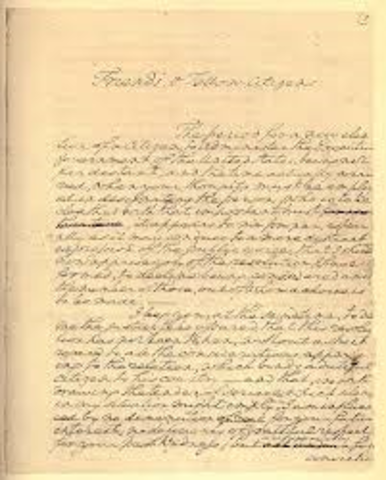 Friends & Fellow-Citizens
The period for a new elec
tion of a Citizen, to administer the Executive
government of the United States, being not
far distant, and the time actually arri
ved, when your thoughts must be employ
ed in designating the person, who is to be
cloathed with that important trust
it appears to me proper, especi
ally as it may conduce to a more distinct
expression of the public voice, that I should
now apprise you of the resolution I have
formed, to decline being considered among
the number of those, out of whom a choice is
to be made.
I beg you, at the same time, to do
me the justice to be assured, that this resolu
tion has not been taken, without a strict
regard to all the considerations apper
to the relation, which binds a dutiful
citizen to his country — and that, in with
drawing the tender of service which silence
in my situation might imply, I am influen
ced by no diminution of zeal for your future
interest, no deficiency of grateful respect
for your past kindness; but
convictio